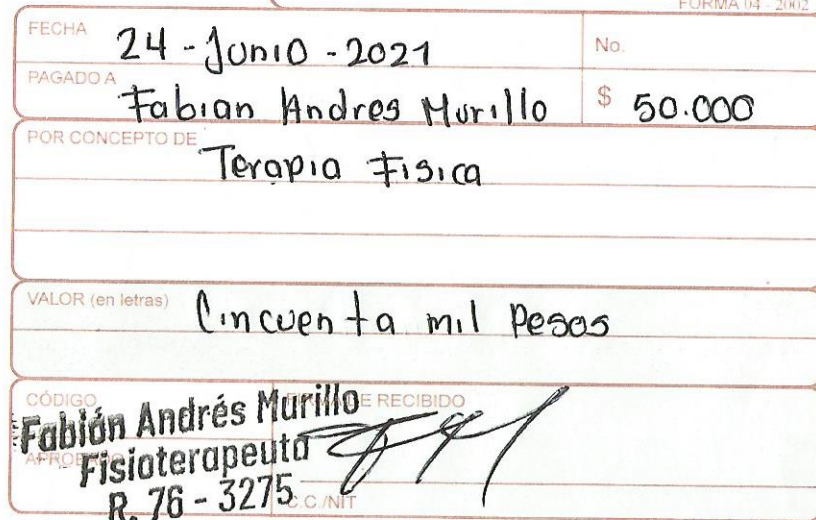 FORMA 04 - 2002
FECHA 24 - Junio - 2021 No.
PAGADO A Fabian Andres Murillo $ 50.000
POR CONCEPTO DE Terapia Fisica
VALOR (en letras) Cincuenta mil Pesos
CÓDIGO FIRMA DE RECIBIDO
Fabián Andrés Murillo
APROBADO
Fisioterapeuta
R. 76 - 3275
C.C./NIT